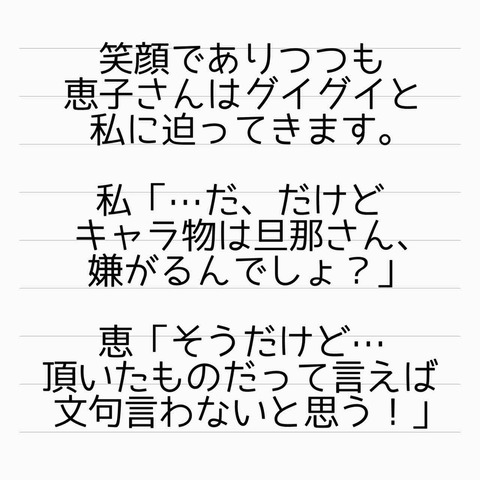 笑顔でありつつも
恵子さんはグイグイと
私に迫ってきます。
私「…だ、だけど
キャラ物は旦那さん、
嫌がるんでしょ？」
恵「そうだけど…
頂いたものだって言えば
文句言わないと思う！」